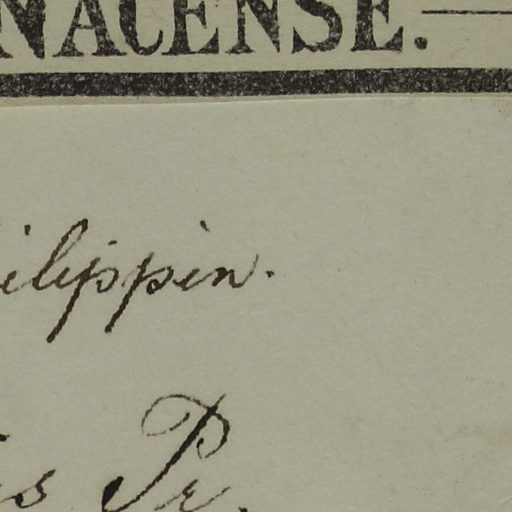 NACENSE.
ilippin.
s Pr.